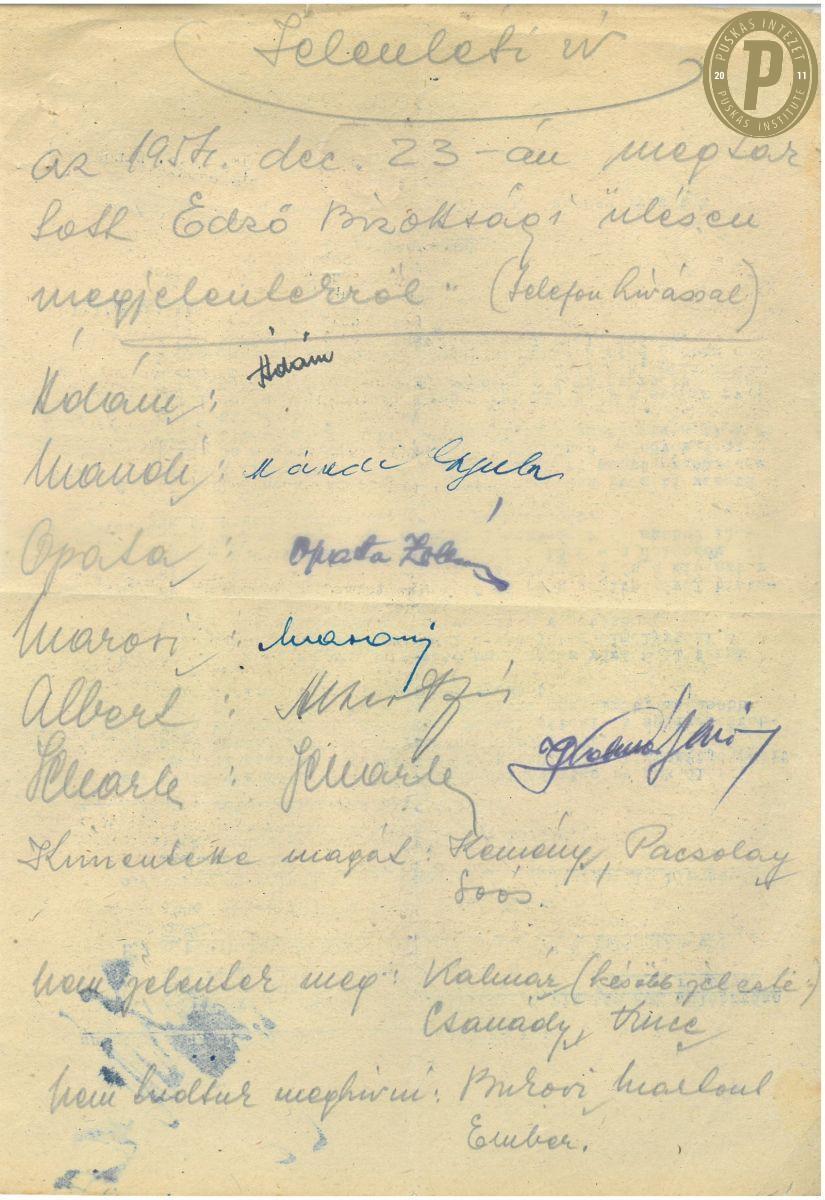 PUSKÁS INTÉZET
20 P 11
PUSKÁS INSTITUTE
Jelenléti ív
az 1957. dec. 23-án megtar
tott Edző Bizottsági ülésen
megjelentekről. (telefon hívással)
Ádám: Ádám
Mándi: Mándi Gyula
Opata: Opata Zoltán
Marosi: Marosi
Albert: Albert
Kalmár Jenő
Kimentette magát: Kemény, Pacsolay
Soós.
Nem jelentek meg: Kalmár (később jelent
Csanády, Vincze
Nem tudtuk meghívni: Bukovi,
Ember.